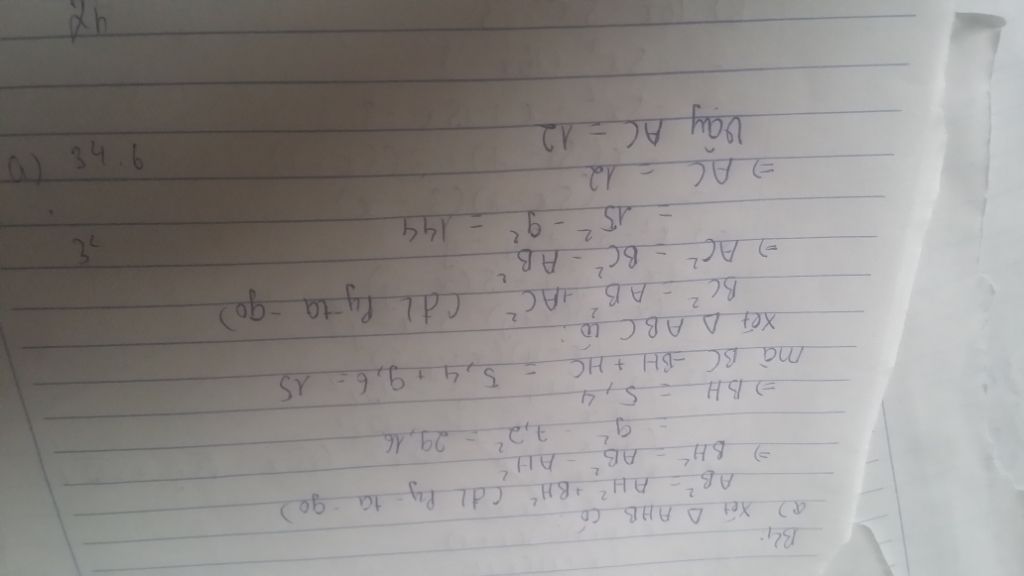 B4:
a) Xét Δ AHB có
AB² = AH² + BH² (đL Py-ta-go)
⇒ BH² = AB² - AH²
= 9² - 7,2² = 29,16
⇒ BH = 5,4
mà BC = BH + HC = 5,4 + 9,6 = 15
Xét Δ ABC có:
BC² = AB² + AC² (đL Py-ta-go)
⇒ AC² = BC² - AB²
= 15² - 9² = 144
⇒ AC = 12
Vậy AC = 12